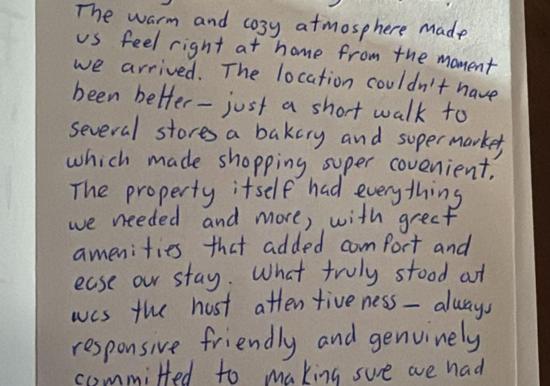 The warm and cozy atmosphere made
us feel right at home from the moment
we arrived. The location couldn't have
been better – just a short walk to
several stores a bakery and supermarket,
which made shopping super covenient.
The property itself had everything
we needed and more, with great
amenities that added comfort and
ease our stay. What truly stood out
was the host attentiveness – always
responsive friendly and genuinely
committed to making sure we had